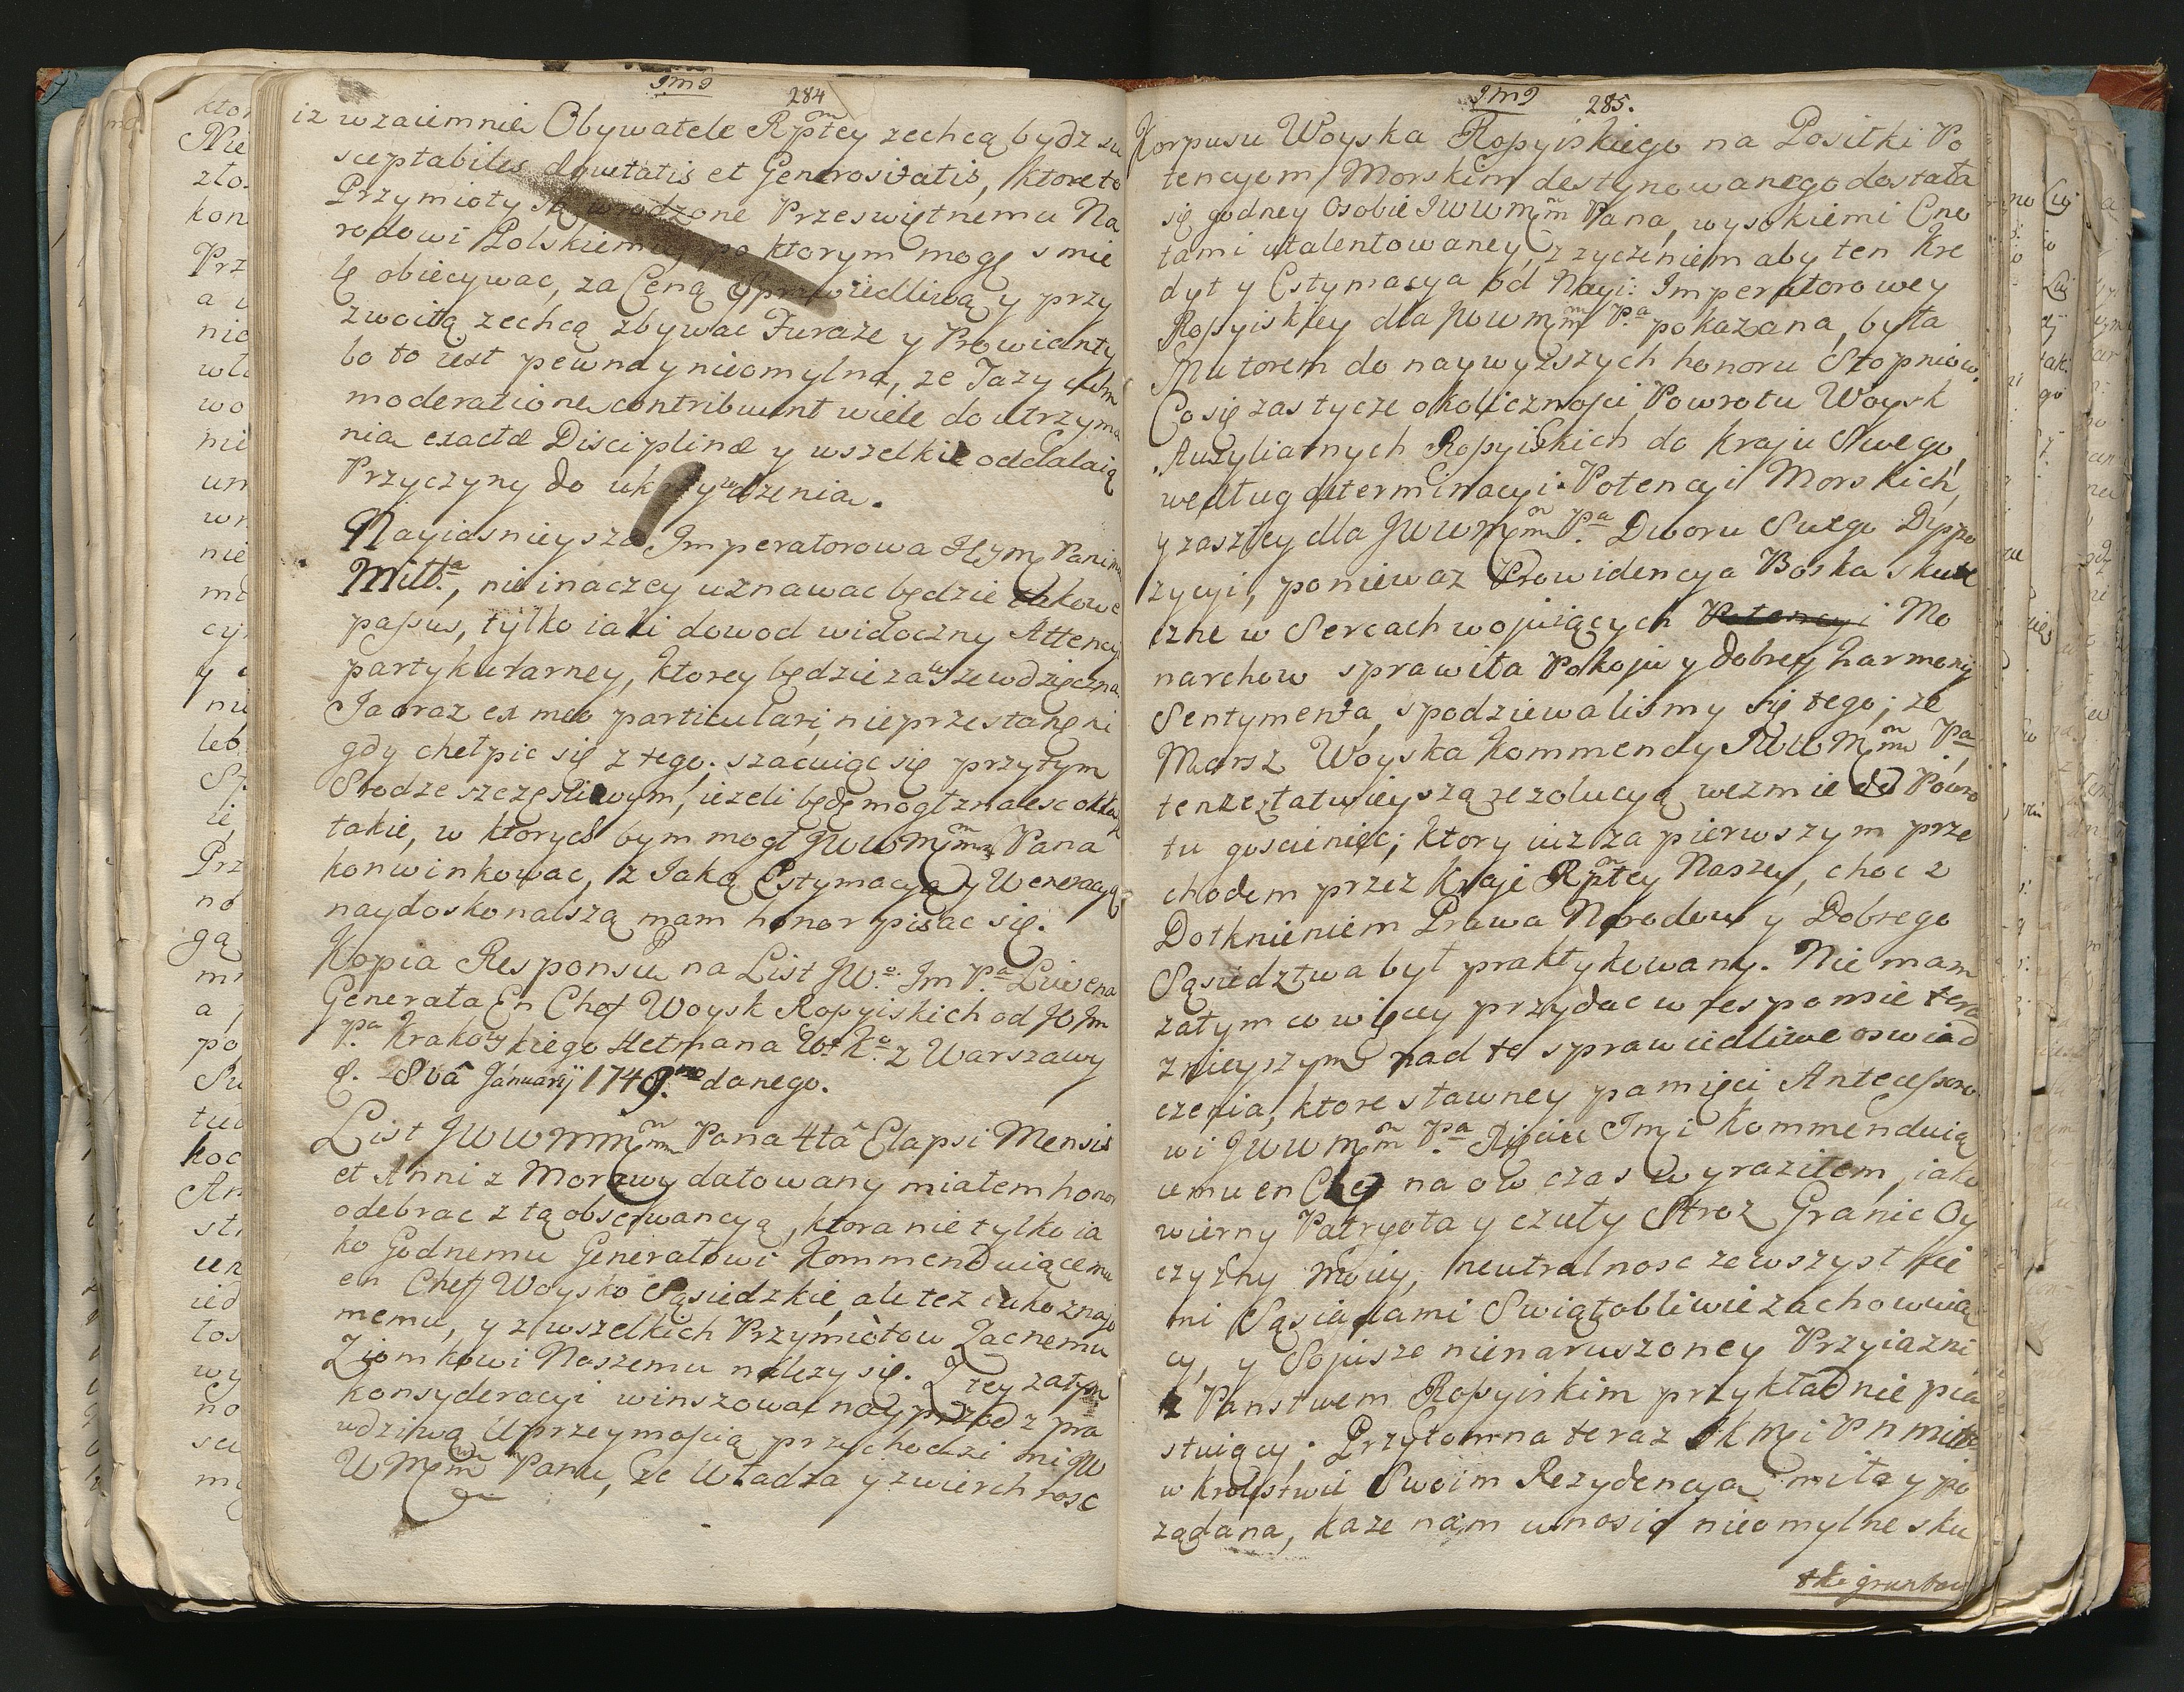 JMJ
284
iz wzaiemnie Obywatele Rptey zechcą bydz su
sceptabiles æquitatis et Generositatis, ktore to
Przymioty są wrodzone Przeswiętnemu Na
rodowi Polskiemu, po ktorym mogę smie
le obiecywac, za Ceną Sprawiedliwą y przy
zwoitą zechcą zbywac Furaze y Prowianty
bo to iest pewna y nieomylna, ze Jazy cum
moderatione contribuunt wiele do utrzyma
nia exactæ Disciplinæ y wszelkie oddalaią
Przyczyny do ukrzywdzenia.
Nayiasnieysza Imperatorowa Jeym Pani
Miłł:a, nie inaczey uznawac będzie takowe
passus, tylko iako dowod widoczny Attency
partykularney, ktorey będzie zawsze wdzięczna.
Ja oraz ex meo particulari, nieprzestanę ni
gdy chełpic się z tego: szacuiąc się przytym
Srodze szczęsliwym, iezeli będę mogł znalesc okka
takie, w ktorych bym mogł JWWMmm Pana
konwinkowac, z Jaką Estymacyą y Weneracyą
naydoskonalszą mam honor pisac się.
Kopia Responsu na List JWo. Im Pa Liwena
Generała En Chef Woysk Rossyiskich od JO Im
Pa Krakowskiego Hetmana W. Ko. z Warszawy
d. 8va Januarij 1748. danego.
List JWWMmm Pana 4ta Elapsi Mensis
et Anni z Morawy datowany miałem honor
odebrac z tą obserwancyą, ktora nie tylko ia
ko Godnemu Generałowi Kommenduiącemu
en Chef Woysko Sąsiedzkie, ale tez iako znajo
memu, y z wszelkich Przymiotow Zacnemu
Ziomkowi Naszemu nalezy się. Z tey zatym
konsyderacyi winszowac nayprzod z pra
wdziwą Uprzeymoscią przychodzi mi JW
WMmm Panu, ze Władza y zwierchnosc
JMJ
285.
Korpusu Woyska Rossyiskiego na Posiłki Po
tencyom Morskim destynowanego dostała
się godney Osobie JWWMmm Pana, wysokiemi Cno
tami utalentowaney, z zyczeniem aby ten Kre
dyt y Estymacya od Nayi: Imperatorowey
Rossyiskiey dla JWWMmm Pa pokazana, była
Autorem do naywyzszych honoru Stopniow.
Co się zas tycze okolicznosci Powrotu Woysk
Auxyliarnych Rossyiskich do Kraju Swego,
według determinacyi Potencyi Morskich,
y zaszłey dla JWWMmm Pa. Dworu Swego Dyspo
zycyi, poniewaz Prowidencya Boska skute
czne w Sercach wojuiących Potencyi Mo
narchow sprawiła Pokoju y dobrey harmonij
Sentymenta, spodziewalismy się tego; ze
Marsz Woyska Kommendy JWWMmm Pa,
tenze łatwieyszą rezolucyą wezmie do Powro
tu gosciniec; ktory iuz za pierwszym prze
chodem przez Kraje Rptey Naszey, choc z
Dotknieniem Prawa Narodow y Dobrego
Sąsiedztwa był praktykowany. Nie mam
zatym co więcey przydac w responsie tera
znieyszym nad te sprawiedliwe oswiad
czenia, ktore sławney pamięci Antecessoro
wi JWWMmm Pa. Xięciu Imci Kommenduią
cemu en Chef na ow czas wyraziłem, iako
wierny Patryota y czuły Stroz Granic Oy
czyzny Moiey, neutralnosc ze wszystkie
mi Sąsiadami Swiątobliwie zachowuią
cy, y Sojusze nienaruszoney Przyiazni
z Panstwem Rossyiskim przykładnie pia
stuiący. Przytomna teraz JKMci P n miłł
w Krolestwie Swoim Rezydencya miła y po
ządana, kaze nam wnosic nieomylne sku
tki gruntow